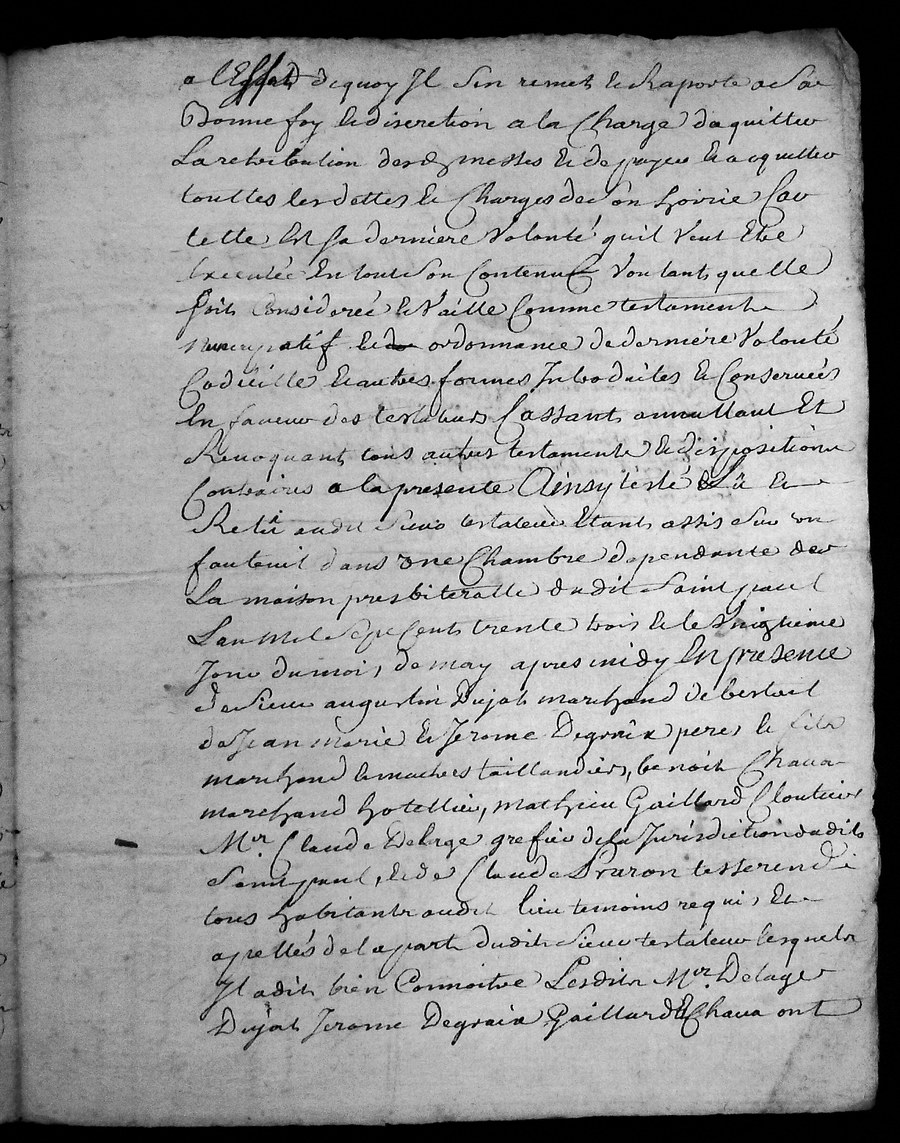 a lEffet dequoy Il sen remet & Raporte a Sa
Bonne foy & discretion a la Charge daquitter
La retribution desd messes & de payer & acquitter
touttes les dettes & Charges de Son hoirie Car
telle Est sa derniere Volonté quil Veut Etre
Executée En tout Son Contenu Voulant quelle
soit Considerée & Vaille Comme testament
Nuncupatif & ordonnance de derniere Volonté
Codicille & autres formes Introduites & Conservées
En faveur des testateurs Cassant annullant Et
Revoquant tous autres testaments & dispositions
Contraires a la presente Ainsy testé & Lu &
Relu audit Sieur testateur Etant assis Sur un
fauteuil dans une Chambre dependante de
La maison presbiteralle dudit Saint paul
Lan Mil Sept Cents trente trois & le
Jour du moi, de may apres midy En presence
de Sieur augustin Dujat marchand de bestail
de Jean marie & Jerome Degraix peres & fils
marchand & maitres taillandiers, benoit Chava
marchand hotellier, mathieu Gaillard Cloutier
Mr. Claude Delage grefier de la Jurisdiction dudit
Saint paul, & de Claude tisserend
tous habitants audit lieu temoins requi, Et
apellés de la part dudit Sieur testateur lesquels
Il adit bien Connoitre Lesdits Mr. Delage
Dujat Jerome Degraix Gaillard & Chava ont